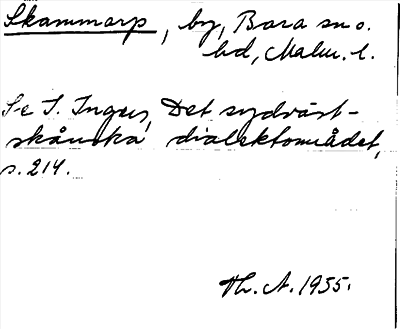 Skammarp, by, Bara sn o.
hd, Malm. l.
Se S. Ingers, Det sydväst-
skånska dialektområdet,
s. 214.
Th. A. 1955.